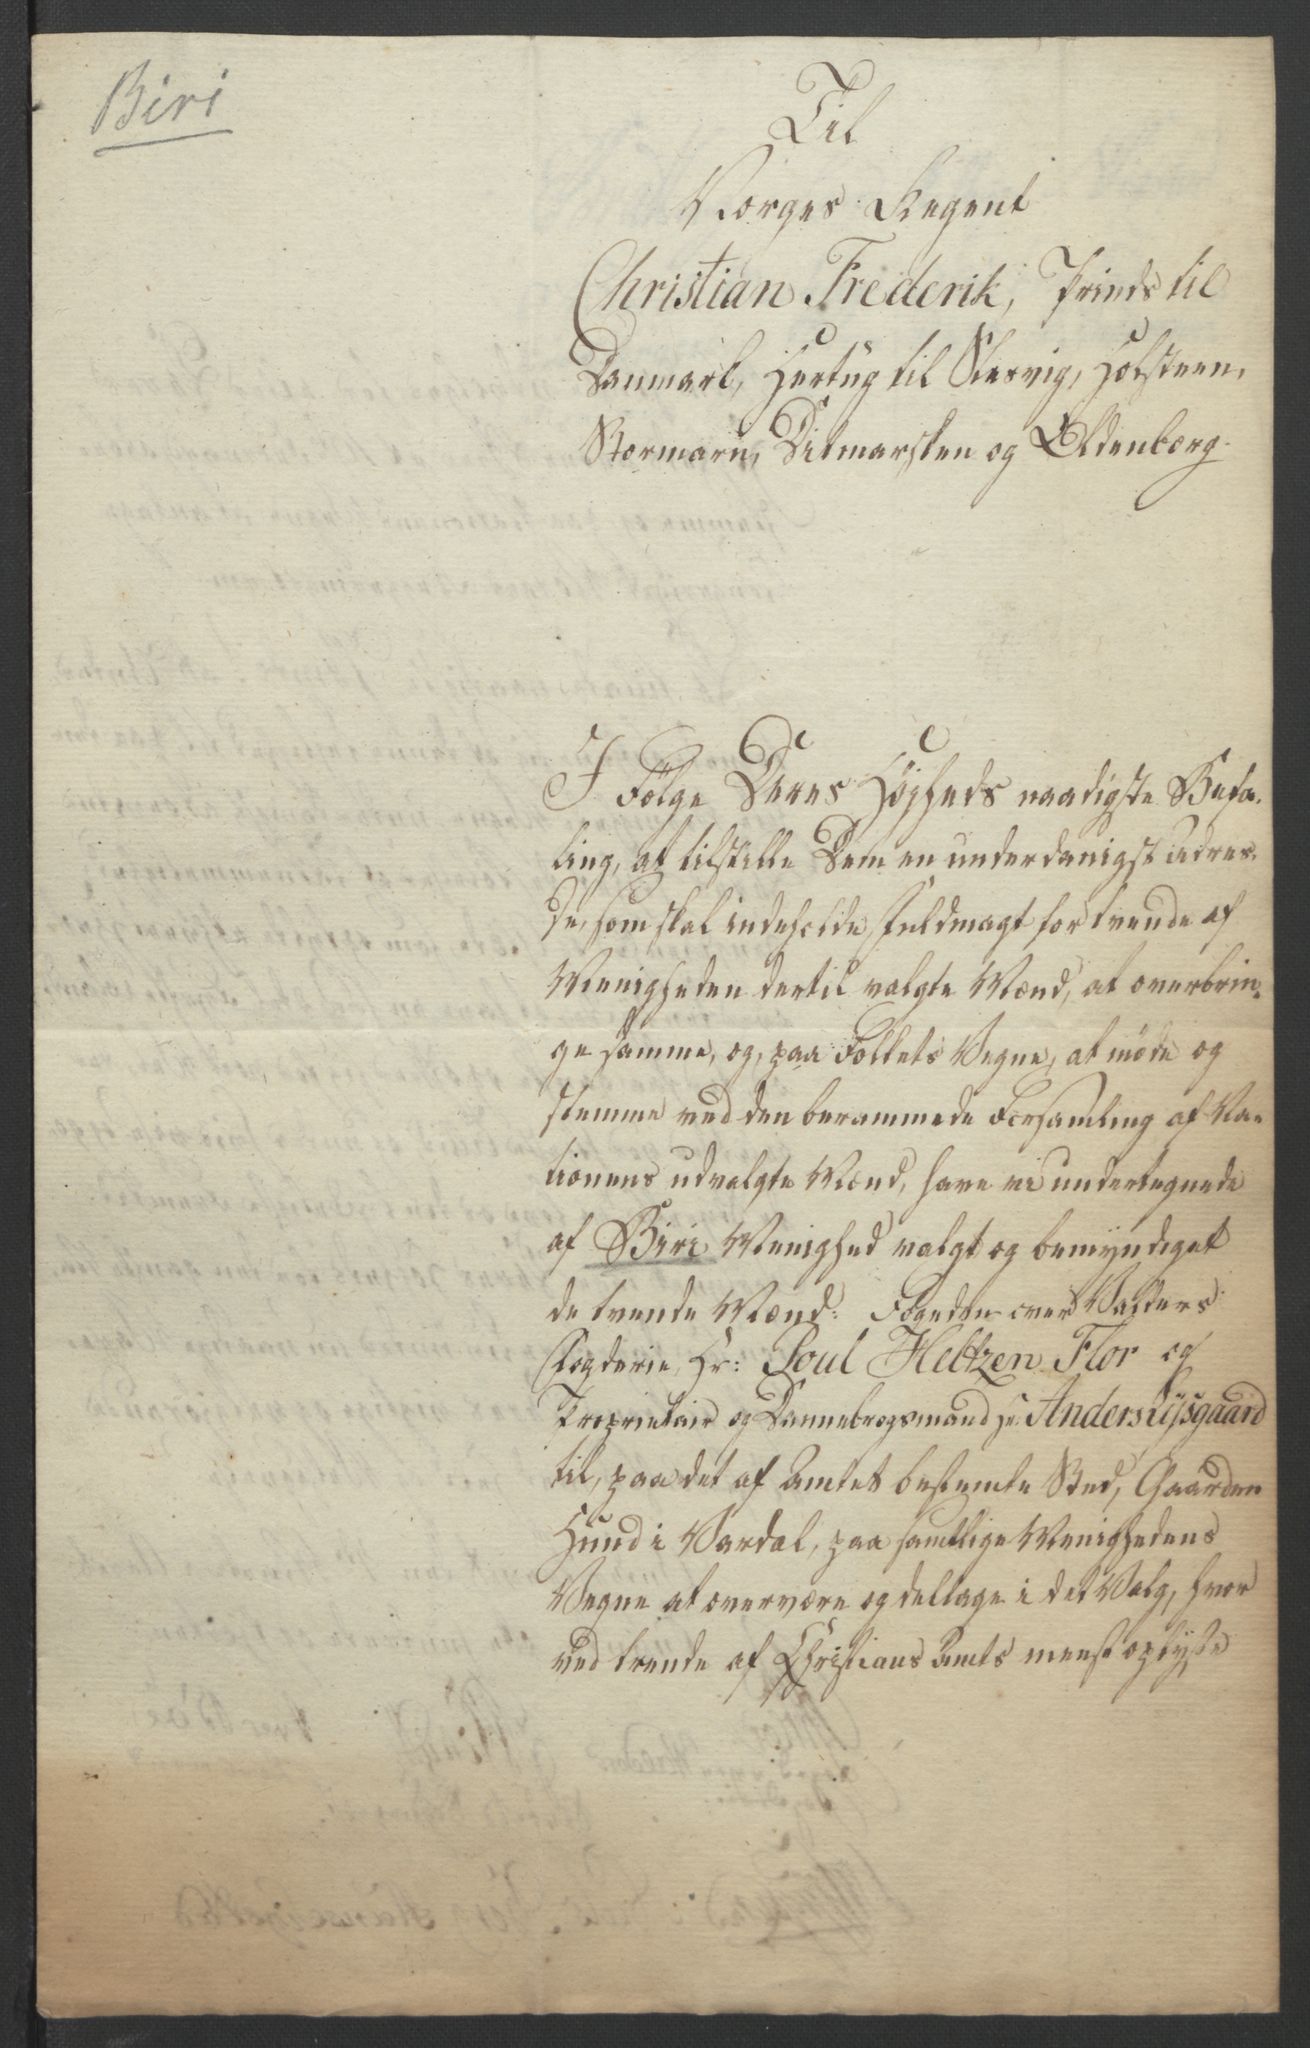 Biri
Til
Norges Regent
Christian Frederik, Prinds til
Danmark, Hertug til Slesvig, Holsteen,
Stormarn, Ditmarsken og Oldenborg.
I Følge Deres Højheds naadigste Befa-
ling, at tilstille Dem en underdanigst adres-
se, som skal indeholde Fuldmagt for tvende af
Menigheden dertil valgte Mænd, at overbrin-
ge samme, og, paa Folkets Vegne, at møde og
stemme ved den berammede Forsamling af Na-
tionens udvalgte Mænd, have vi undertegnede
af Biri Menighed valgt og bemyndiget
de tvende Mænd: Fogeden over Valders
Fogderie, Hr: Poul Heltzen Flor og
Proprietair og Dannebrogsmand Hr. Anders Lysgaard
til, paa det af Amtet bestemte Sted, Gaarden
Hund i Vardal, paa samtlige Menighedens
Vegne at overvære og deltage i det Valg, hvor
ved trende af Christians Amts meest oplyste